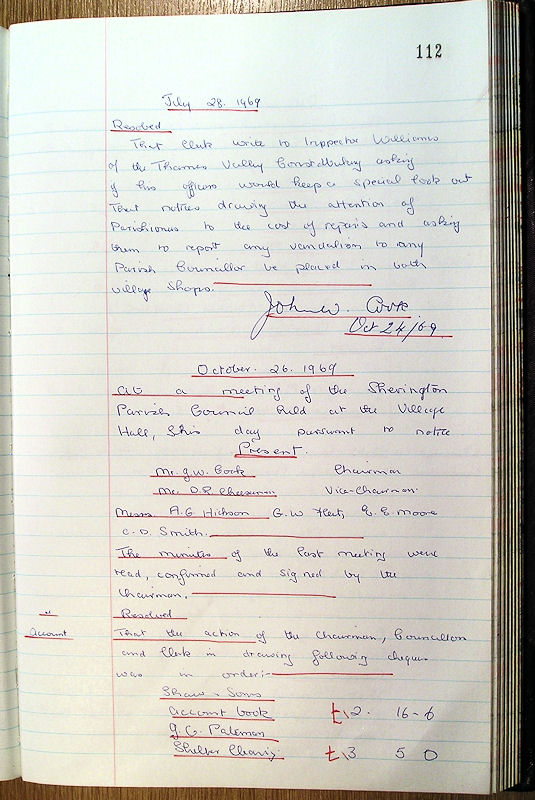 112
July 28. 1969
Resolved
That Clerk write to Inspector Williams
of the Thames Valley Constabulary asking
if his officers would keep a special look out
That notices drawing the attention of
Parishioners to the cost of repairs and asking
them to report any vandalism to any
Parish Councillor be placed in both
village shops.
John W. Cook
Oct 24/69.
October. 26. 1969
At a meeting of the Sherington
Parish Council held at the Village
Hall, this day pursuant to notice
Present.
Mr. J.W. Cook Chairman
Mr. D.R. Cheeseman Vice-Chairman.
Messrs. A.G. Hickson G.W. Fleet, E.E. Moore
C.D. Smith.
The minutes of the last meeting were
read, confirmed and signed by the
Chairman.
Resolved
Account That the action of the Chairman, Councillor
and Clerk in drawing following cheques
was in order:-
Shaw & Sons
Account book £12. 16-6
Shelter £13 5 0